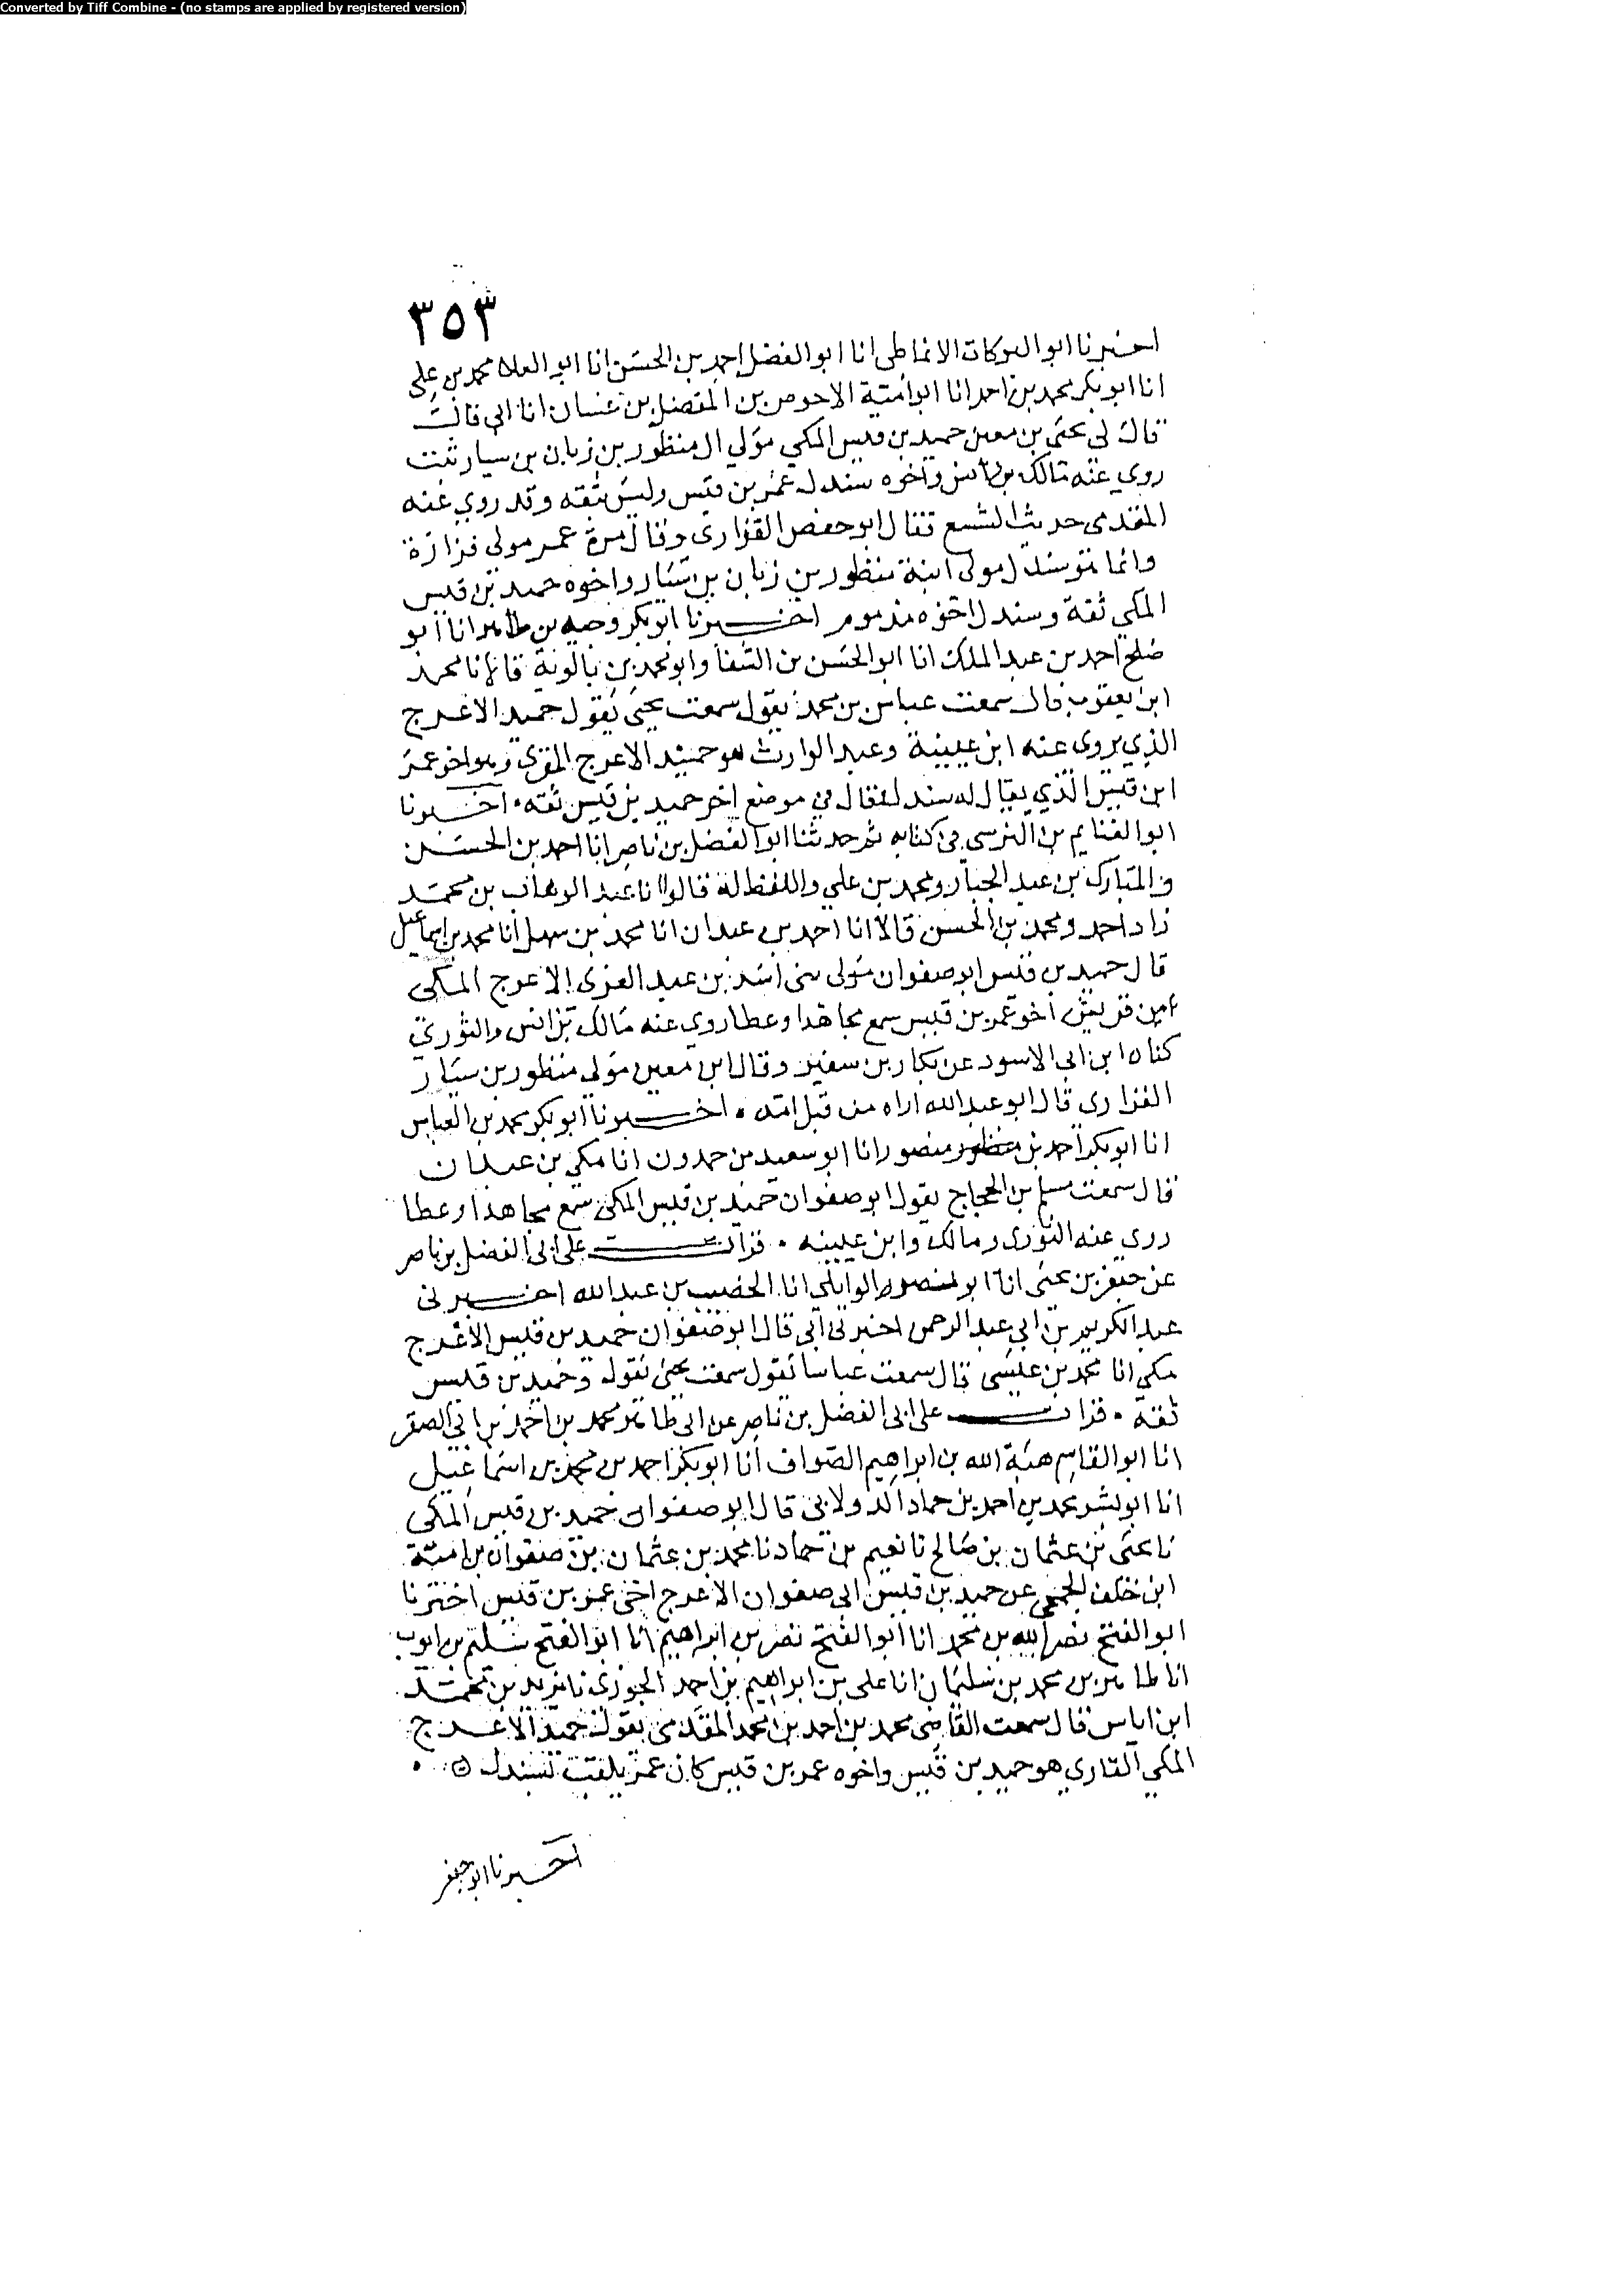 Converted by Tiff Combine - (no stamps are applied by registered version)
٣٥٣
اخبرنا ابو البركات الانماطي انا ابو الفضل احمد بن الحسن انا ابو العلا محمد بن علي
انا ابو بكر محمد بن احمد انا ابو امية الاحوص بن المفضل بن غسان انا ابي قال
قال لي يحيى بن معين حميد بن قيس المكي مولي ال منظور بن زبان بن سيار ثبت
روي عنه مالك بن انس واخوه سندل عمر بن قيس وليس بثقه وقد روي عنه
المقدمي حديث الشسع فقال ابو حفص الفزاري وقال مرة عمر مولى فزارة
وانما هو سندل مولى ابنة منظور بن زبان بن سيار واخوه حميد بن قيس
المكي ثقة وسندل اخوه مذموم اخبرنا ابو بكر وجيه بن طاهر انا ابو
صلح احمد بن عبد الملك انا ابو الحسن بن السقا وابو محمد بن بالوية قالا نا محمد
ابن يعقوب قال سمعت عباس بن محمد يقول سمعت يحيى يقول حميد الاعرج
الذي يروي عنه ابن عيينة وعبد الوارث هو حميد الاعرج المقري وهو اخو عمر
ابن قيس الذي يقال له سندل فقال في موضع اخر حميد بن قيس ثقه اخبرنا
ابو الغنايم بن النرسي في كتابه ثم حدثنا ابو الفضل بن ناصر انا احمد بن الحسن
والمبارك بن عبد الجبار ومحمد بن علي واللفظ له قالوا انا عبد الوهاب بن محمد
زاد احمد ومحمد بن الحسن قالا انا احمد بن عبدان انا محمد بن سهل انا محمد بن اسماعيل
قال حميد بن قيس ابو صفوان مولى بني اسد بن عبد العزى الاعرج المكي
من قريش اخو عمر بن قيس سمع مجاهدا وعطا روي عنه مالك بن انس والثوري
كناه ابن ابي الاسود عن بكار بن سفين وقال ابن معين مولي منظور بن سيار
الفزاري قال ابو عبد الله اراه من قبل امه اخبرنا ابو بكر محمد بن العباس
انا ابو بكر احمد بن منصور انا ابو سعيد بن حمدون انا مكي بن عبدان
قال سمعت مسلم بن الحجاج يقول ابو صفوان حميد بن قيس المكي سمع مجاهدا وعطا
روى عنه الثوري ومالك وابن عيينه قرات على ابي الفضل بن ناصر
عن جعفر بن يحيى انا ابو نصر الوايلي انا الخصيب بن عبد الله اخبرني
عبد الكريم بن ابي عبد الرحمن اخبرني ابي قال ابو صفوان حميد بن قيس الاعرج
مكي انا محمد بن عيسى قال سمعت عباسا يقول سمعت يحيى يقول وحميد بن قيس
ثقة قرات على ابي الفضل بن ناصر عن ابي طاهر محمد بن احمد بن ابي الصقر
انا ابو القاسم هبة الله بن ابراهيم الصواف انا ابو بكر احمد بن محمد بن اسماعيل
انا ابو بشر محمد بن احمد بن حماد الدولابي قال ابو صفوان حميد بن قيس المكي
نا يحيى بن عثمان بن صالح نا نعيم بن حماد نا محمد بن عثمان بن صفوان بن امية
ابن خلف الجمحي عن حميد بن قيس ابي صفوان الاعرج اخي عمر بن قيس اخبرنا
ابو الفتح نصر الله بن محمد انا ابو الفتح نصر بن ابراهيم انا ابو الفتح سليم بن ايوب
انا طاهر بن محمد بن سليمان انا علي بن ابراهيم بن احمد الجوزي نا يزيد بن محمد
ابن اياس قال سمعت القاضي محمد بن احمد بن محمد المقدمي يقول حميد الاعرج
المكي القاري هو حميد بن قيس واخوه عمر بن قيس كان عمر يلقب بسندل
اخبرنا ابو جعفر